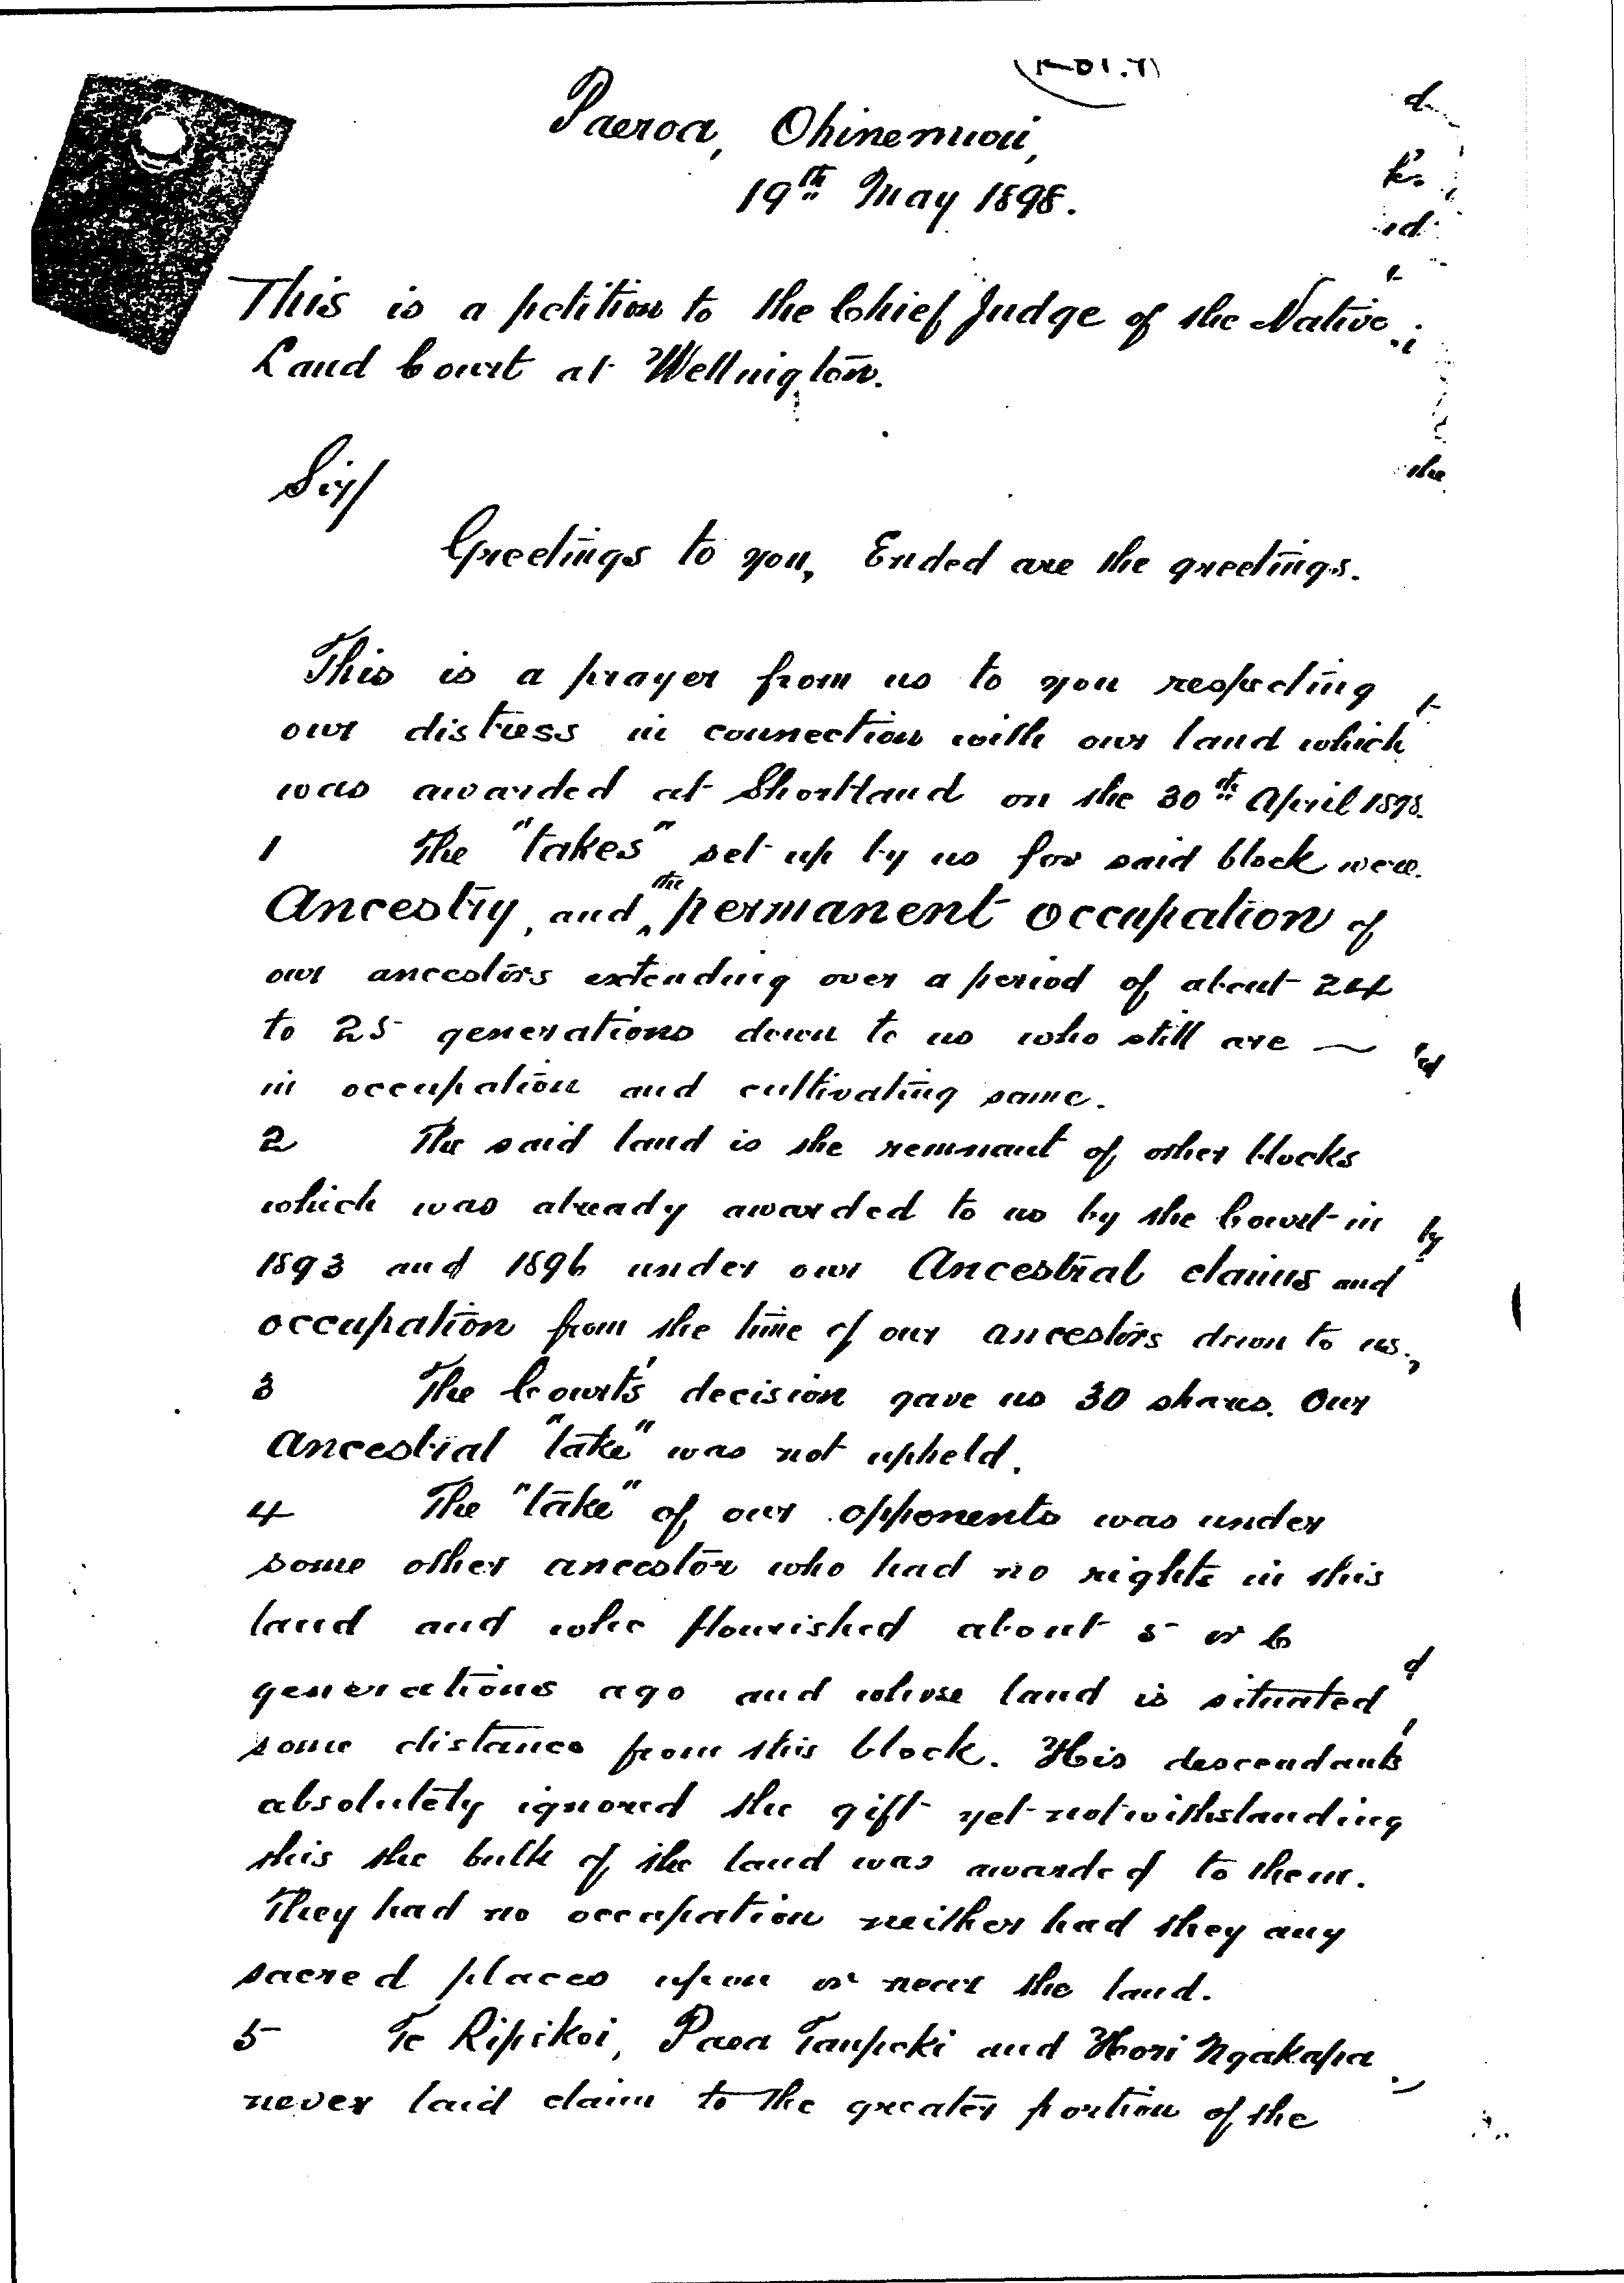 Paeroa, Ohinemuri,
19th May 1898.
This is a petition to the Chief Judge of the Native
Land Court at Wellington.
Sir/
Greetings to you, Ended are the greetings.
This is a prayer from us to you respecting
our distress in connection with our land which
was awarded at Shortland on the 30th April 1898.
1 The "takes" set up by us for said block were
Ancestry, and the permanent occupation of
our ancestors extending over a period of about 24
to 25 generations down to us who still are —
in occupation and cultivating same.
2 The said land is the remnant of other blocks
which was already awarded to us by the Court in
1893 and 1896 under our Ancestral claims and
occupation from the time of our ancestors down to us.
3 The Court's decision gave us 30 shares. Our
Ancestral "take" was not upheld.
4 The "take" of our opponents was under
some other ancestor who had no rights in this
land and who flourished about 5 or 6
generations ago and whose land is situated
some distance from this block. His descendants
absolutely ignored the gift yet notwithstanding
this the bulk of the land was awarded to them.
They had no occupation neither had they any
sacred places upon or near the land.
5 Te Ripikoi, Paea Taupoki and Hori Ngakapa
never laid claim to the greater portion of the